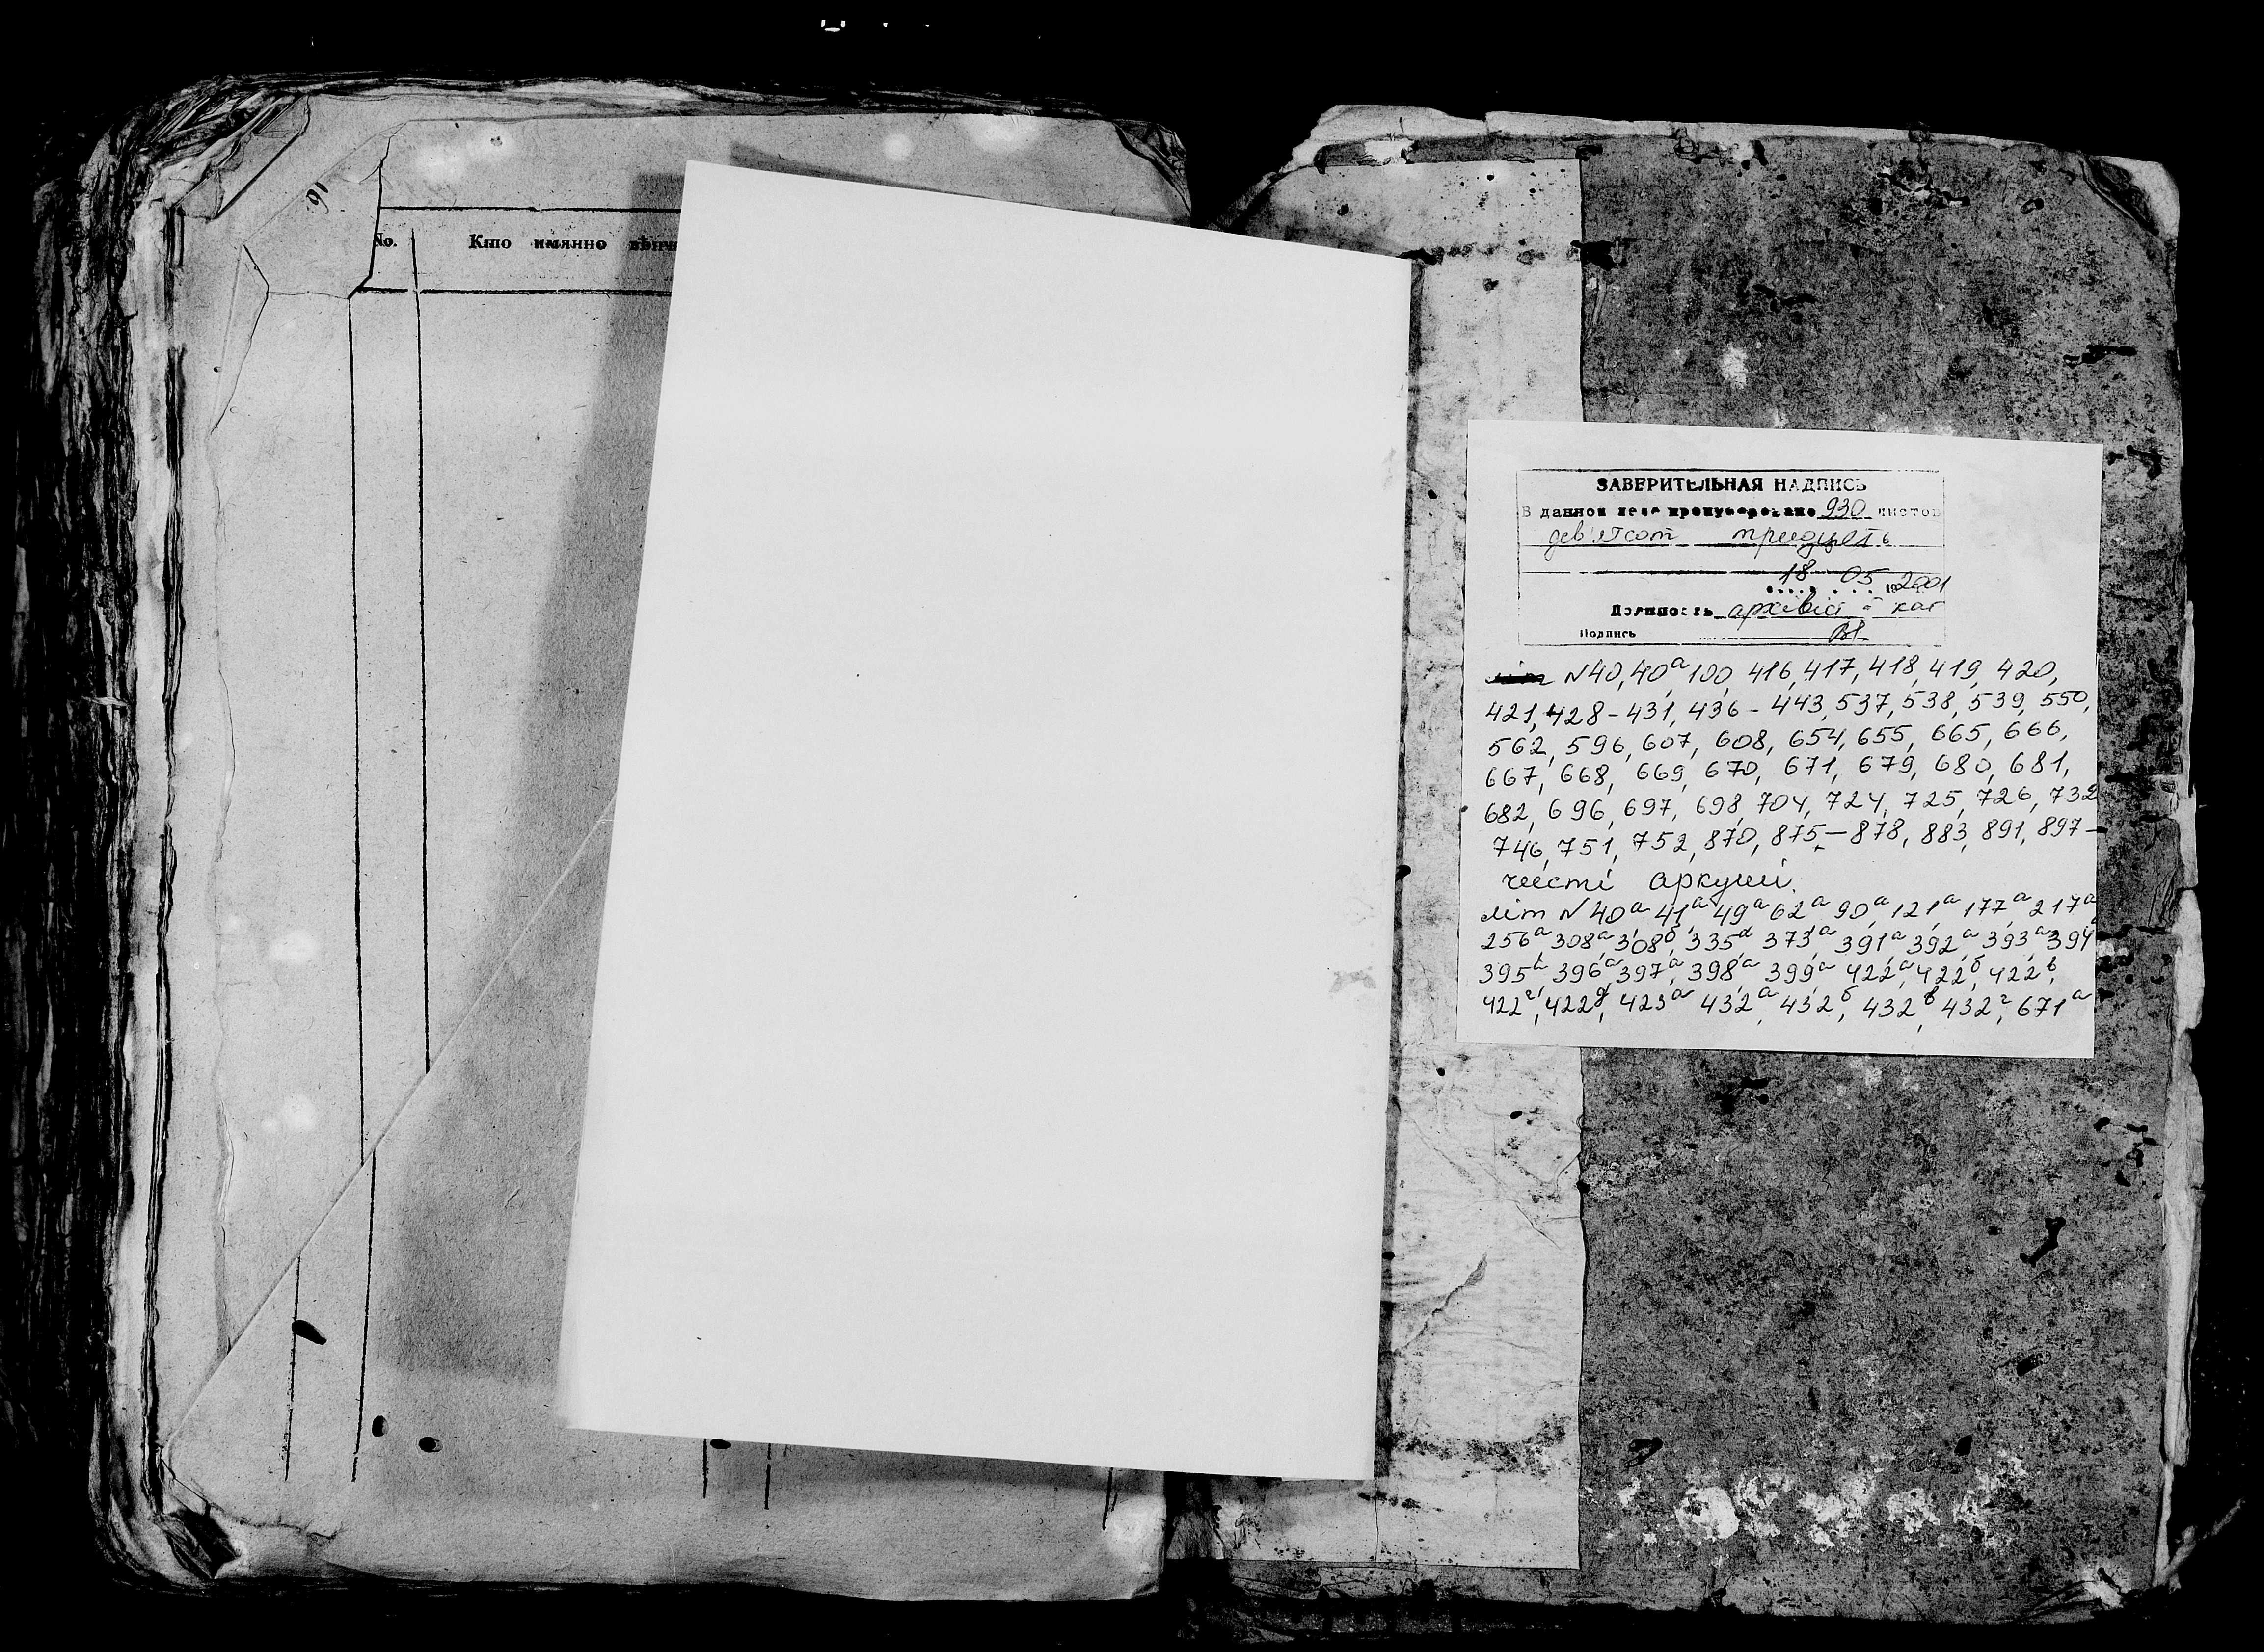 91
No. Кто имянно вѣнч
ЗАВЕРИТЕЛЬНАЯ НАДПИСЬ
В данном деле пронумеровано 930 листов
дев'ятсот тридцять
18 05 2001
Должность архівіст кат
Подпись
N 40, 40а, 100, 416, 417, 418, 419, 420,
421, 428-431, 436-443, 537, 538, 539, 550,
562, 596, 607, 608, 654, 655, 665, 666,
667, 668, 669, 670, 671, 679, 680, 681,
682, 696, 697, 698, 704, 724, 725, 726, 732
746, 751, 752, 870, 875-878, 883, 891, 897-
чисті аркуші.
літ N 40а, 41а, 49а, 62а, 90а, 121а, 177а, 217а
256а, 308а, 308б, 335а, 373а, 391а, 392а, 393а, 394
395а, 396а, 397а, 398а, 399а, 422а, 422б, 422в,
422г, 422д, 423а, 432а, 432б, 432в, 432г, 671а